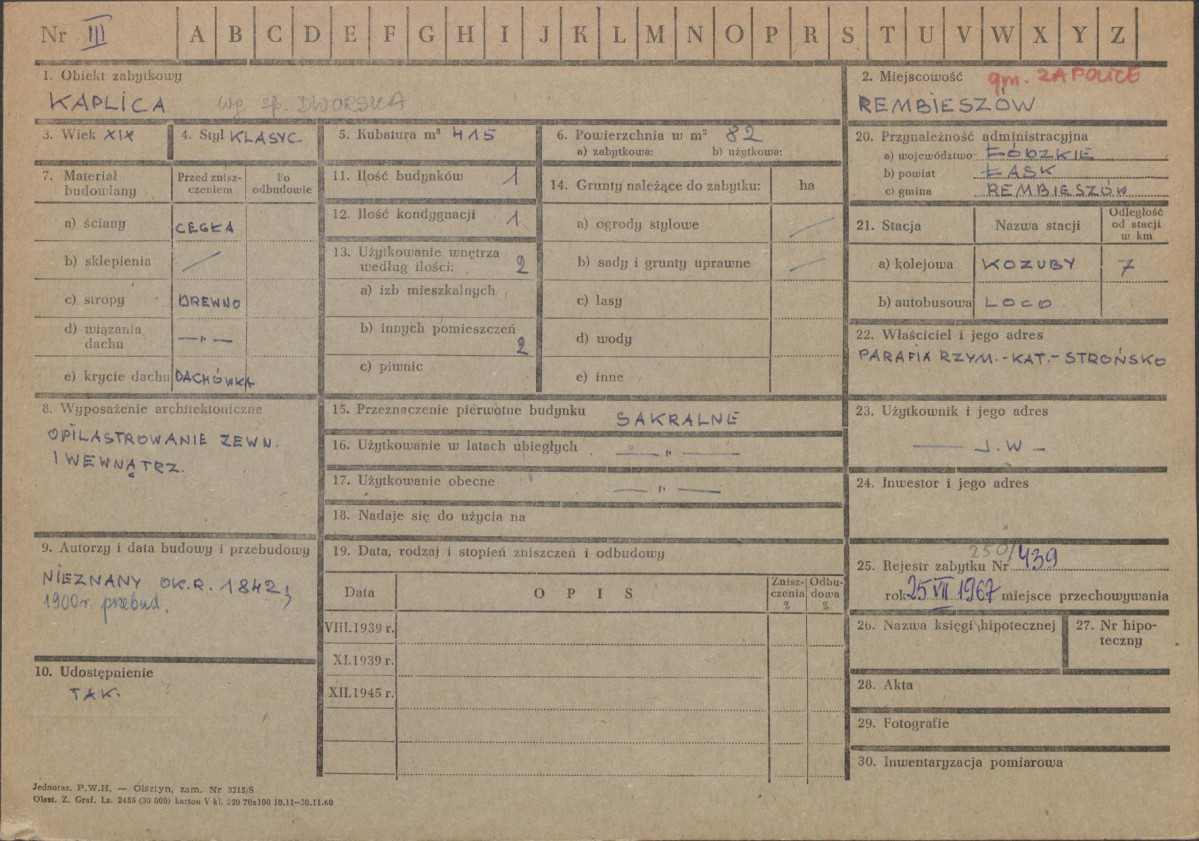 Nr III A B C D E F G H I J K L M N O P R S T U V W X Y Z
1. Obiekt zabytkowy
KAPLICA wg sp. DWORSKA
2. Miejscowość gm. ZAPOLICE
REMBIESZÓW
3. Wiek XIX
4. Styl KLASYC.
5. Kubatura m³ 415
6. Powierzchnia w m² 82
a) zabytkowa: b) użytkowa:
7. Materiał budowlany
Przed znisz-
czeniem
Po
odbudowie
a) ściany CEGŁA
b) sklepienia
c) stropy DREWNO
d) wiązania
dachu —"—
e) krycie dachu DACHÓWKA
8. Wyposażenie architektoniczne
OPILASTROWANIE ZEWN.
I WEWNĄTRZ.
9. Autorzy i data budowy i przebudowy
NIEZNANY OK.R. 1842;
1900r. przebud.
10. Udostępnienie
TAK.
11. Ilość budynków 1
12. Ilość kondygnacji 1
13. Użytkowanie wnętrza
według ilości: 2
a) izb mieszkalnych
b) innych pomieszczeń
2
c) piwnic
14. Grunty należące do zabytku: ha
a) ogrody stylowe
b) sady i grunty uprawne
c) lasy
d) wody
e) inne
15. Przeznaczenie pierwotne budynku SAKRALNE
16. Użytkowanie w latach ubiegłych —"—
17. Użytkowanie obecne —"—
18. Nadaje się do użycia na
19. Data, rodzaj i stopień zniszczeń i odbudowy
Data OPIS
Znisz-
czenia
%
Odbu-
dowa
%
VIII.1939 r.
XI.1939 r.
XII.1945 r.
20. Przynależność administracyjna
a) województwo ŁÓDZKIE
b) powiat ŁASK
c) gmina REMBIESZÓW
21. Stacja Nazwa stacji
Odległość
od stacji
w km
a) kolejowa KOZUBY 7
b) autobusowa LOCO
22. Właściciel i jego adres
PARAFIA RZYM.-KAT.- STROŃSKO
23. Użytkownik i jego adres
— J.W —
24. Inwestor i jego adres
25. Rejestr zabytku Nr 250/439
rok 25 VII 1967 miejsce przechowywania
26. Nazwa księgi hipotecznej
27. Nr hipo-
teczny
28. Akta
29. Fotografie
30. Inwentaryzacja pomiarowa
Jednoraz. P.W.H. — Olsztyn, zam. Nr 3215/S
Olszt. Z. Graf. Lz. 2485 (30 000) karton V kl. 220 70x100 10.11—30.11.60